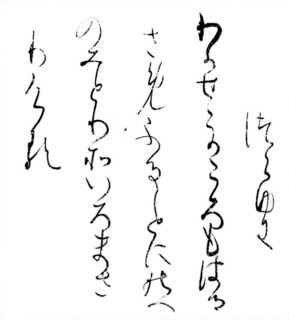 つらゆき
わかせこかころもはる
さめふることにのへ
のみとりそいろまさ
りける